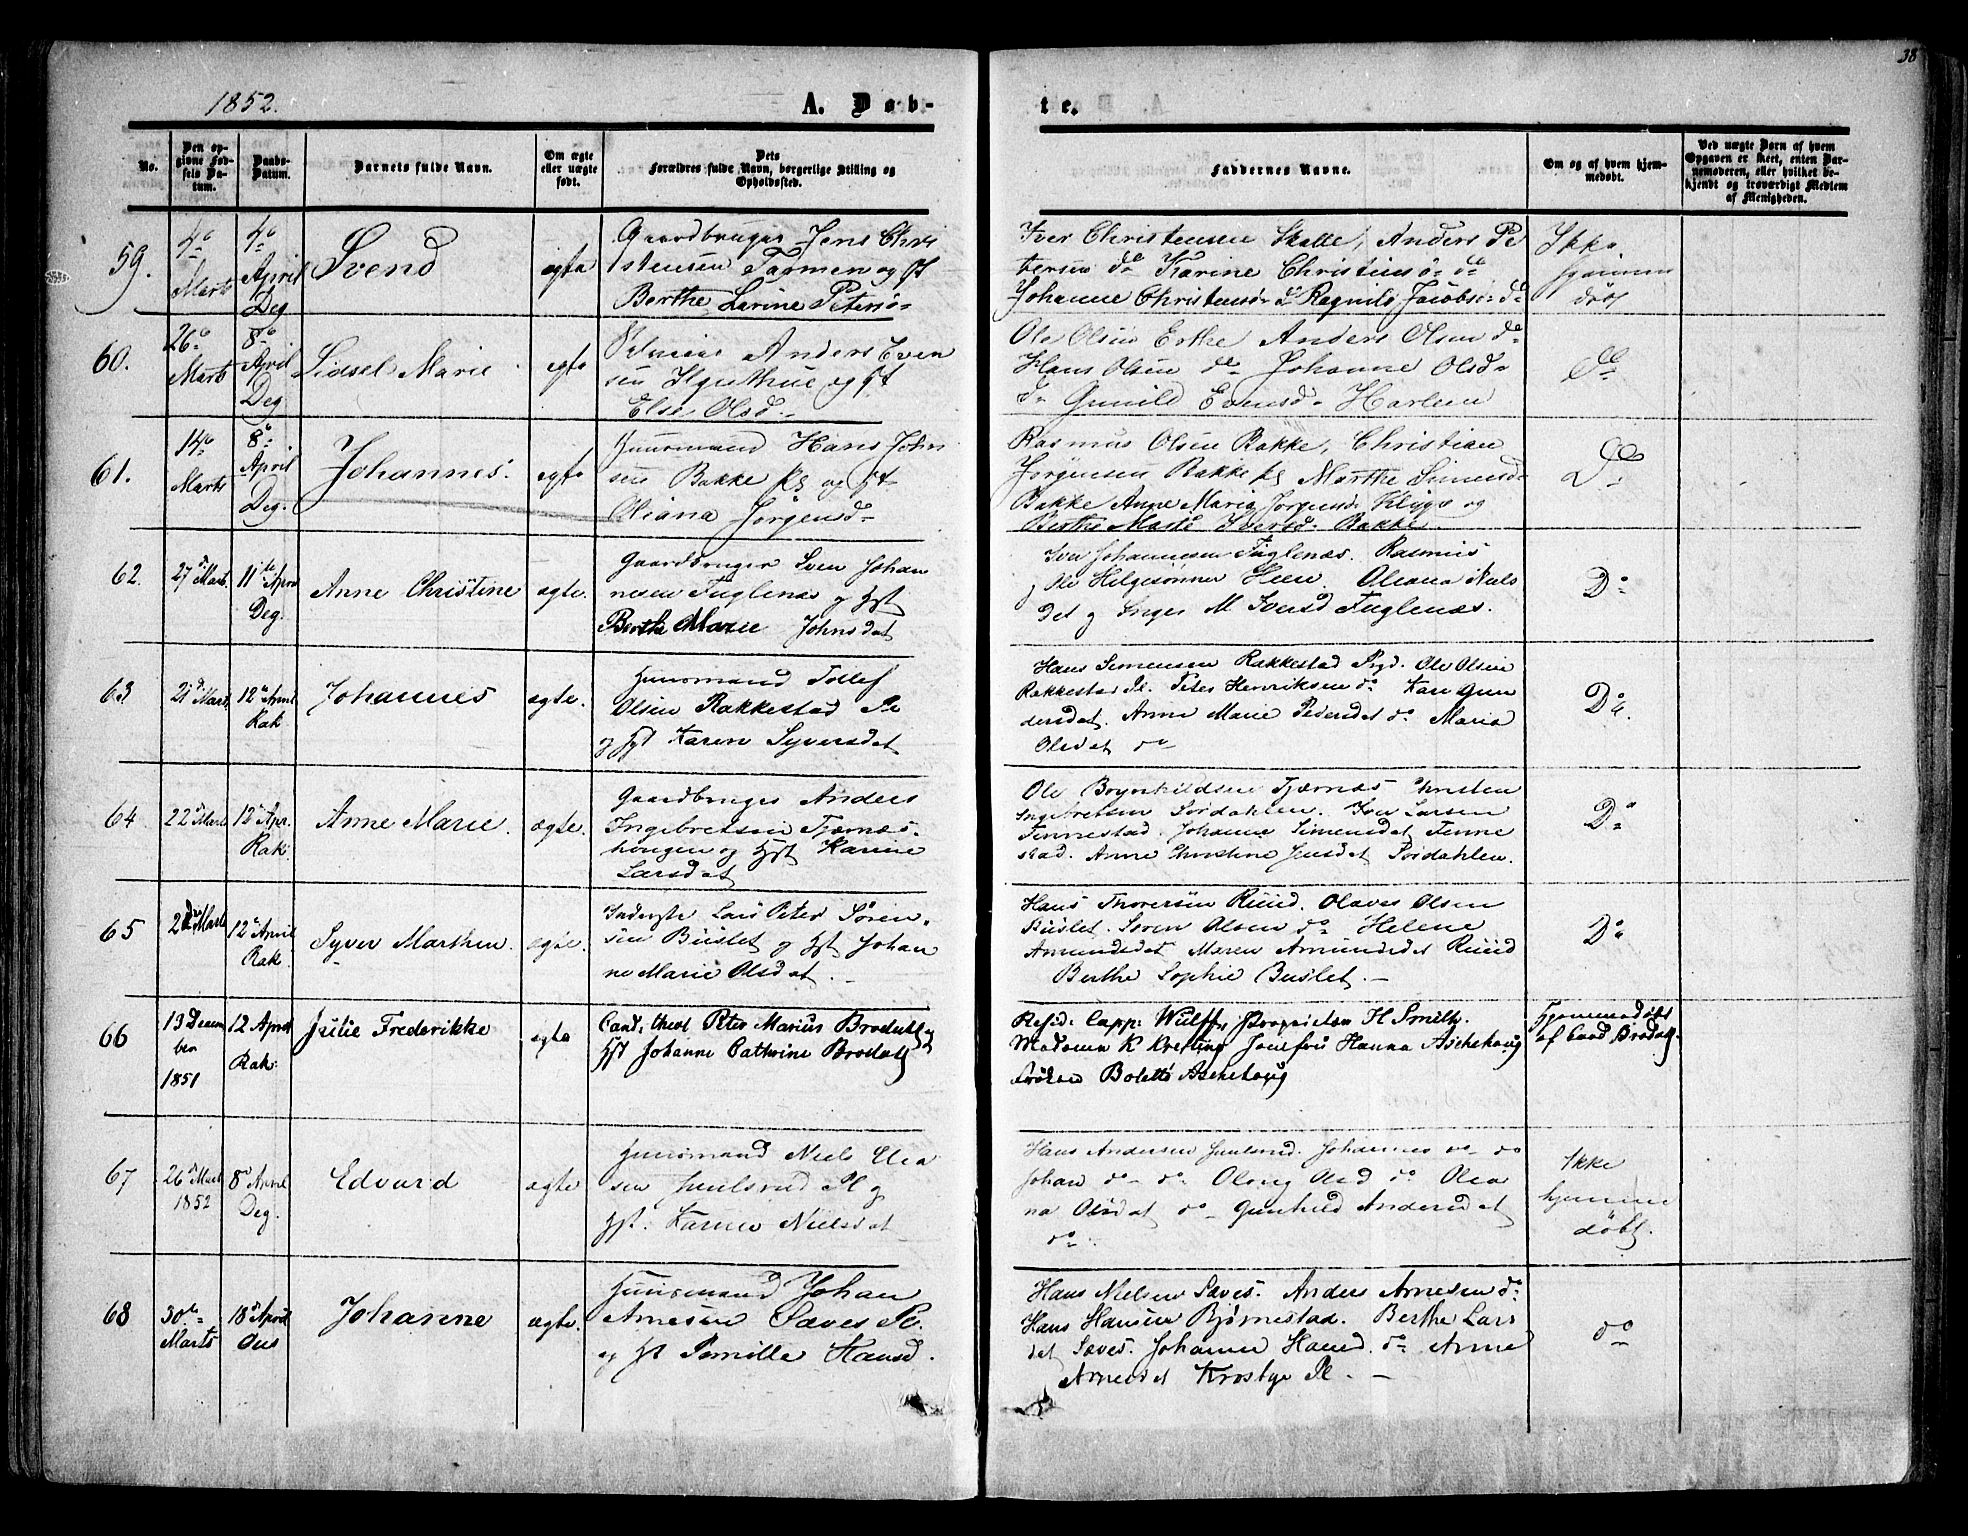 38
1852.
A. Døb-
te.
No.
Den op-
givne Fød-
sels Da-
tum.
Daabs-
Datum.
Barnets fulde Navn.
Om ægte
eller uægte
født.
Dets
Forældres fulde Navn, borgerlige Stilling og
Opholdssted.
Faddernes Navne.
Om og af hvem hjem-
medøbt.
Ved uægte Børn af hvem
Opgaven er skeet, enten Bar-
nemoderen, eller hvilket be-
kjendt og troværdigt Medlem
af Menigheden.
59.
4de
Marts
4de
April
Deg
Svend
ægte
Gaardbruger Jens Chri
stensen Tarmen og H
Berthe Larine Peters
Iver Christensen Skolle, Anders Pe
tersen do Karine Christens do
Johanne Christens do Ragnild Jacobs do
Ikke
hjemme
døbt
60.
26de
Marts
8de
April
Deg
Lidsel Marie
ægte
Anders Even
sen og H
Else Olsd.
Ole Olsen Erthe Anders Olsen do
Hans Olsen do Johanne Olsd.
do Gunild Evensd. Harlem
do
61.
14de
Marts
8de
April
Deg.
Johannes.
ægte
Huusmand Hans John
sen Bakke og H
Oliana Jørgensd.
Rasmus Olsen Bakke, Christian
Jørgensen Bakke Marthe Simensd.
Bakke Anne Maria Jørgensd. og
Berthe Marie Iversd. Bakke
Do
62.
27de Marts.
11te April
Deg.
Anne Christine
ægte.
Gaardbruger Sven Johan
nesen Fuglenæs og Hst
Berthe Marie Johnsdat
Iver Johannesen Fuglenæs. Rasmus
og Ole Helgesønner Heen Oliana Niels
dat og Inger M Iversd Fuglenæs.
Do
63
21d Marts
12te April
Rak
Johannes
ægte.
Huusmand Tollef
Olsen Rakkestad Pe
og Hst Karen Syversdat
Hans Simensen Rakkestad Prgd. Ole Olsen
Rakkestad Pl. Peter Henriksen do Kari Gun
dersdat. Anne Marie Pedersdat do Maria
Olsdat do
Do.
64
22d Marts
12te Apr.
Rak.
Anne Marie.
ægte.
Gaardbruger Anders
Ingebretsen Tjærnæs-
hougen og Hst Karine
Larsdat
Ole Brynhildsen Tjærnæs Christen
Ingebretsen Sørdahlen. Iver Larsen
Tennestad. Johanne Simensdat Tenne
stad. Anne Christine Jensdat Sørdahlen.
Do
65
Marts
12te April
Rak.
Syver Marthin.
ægte.
Inderste Lars Peter Søren-
sen Buslet og Hst Johan
ne Marie Olsdat.
Hans Thoresen Ruud. Olaves Olsen
Buslet. Søren Olsen do Helene
Amundsdat Maren Amundsdat Ruud
Berthe Sophie Buslet. —
Do
66
13 Decem
ber
1851
12 April
Rak.
Julie Frederikke
ægte
Cand. theol Peter Marius Brodall og
Hst Johanne Cathrine Brodall
Resid: Capp: Wulff, Proprietær H Smith.
Madamm K Kresting Jomfru Hanna Aschehoug
Frøken Bolette Aschehoug
Hjemmedøbt
af Cand Brodall.
67
26d Marts
1852
8d April
Deg.
Edvard
ægte
Huusmand Niels Elia
sen Huulsrud Pl og
Hst. Karen Nielsdat
Hans Andersen Huulsrud. Johannes do — do
Johan do — do Oloug Olsd do Olea
na Olsdat do — Gunhild Andersdat
do.
Ikke
hjemme
døbt.
68
30te
Marts
18d April
Ous
Johanne
ægte.
Huusmand Johan
Arnesen Saves Pl.
og Hst Pernille Hansd.
Hans Nielsen Saves. Anders Arnesen do
Hans Hansen Bjørnestad. Berthe Lars
dat Saves. Johanne Hansd. do Anne
Arnesdat Krosbye Pl. —
do